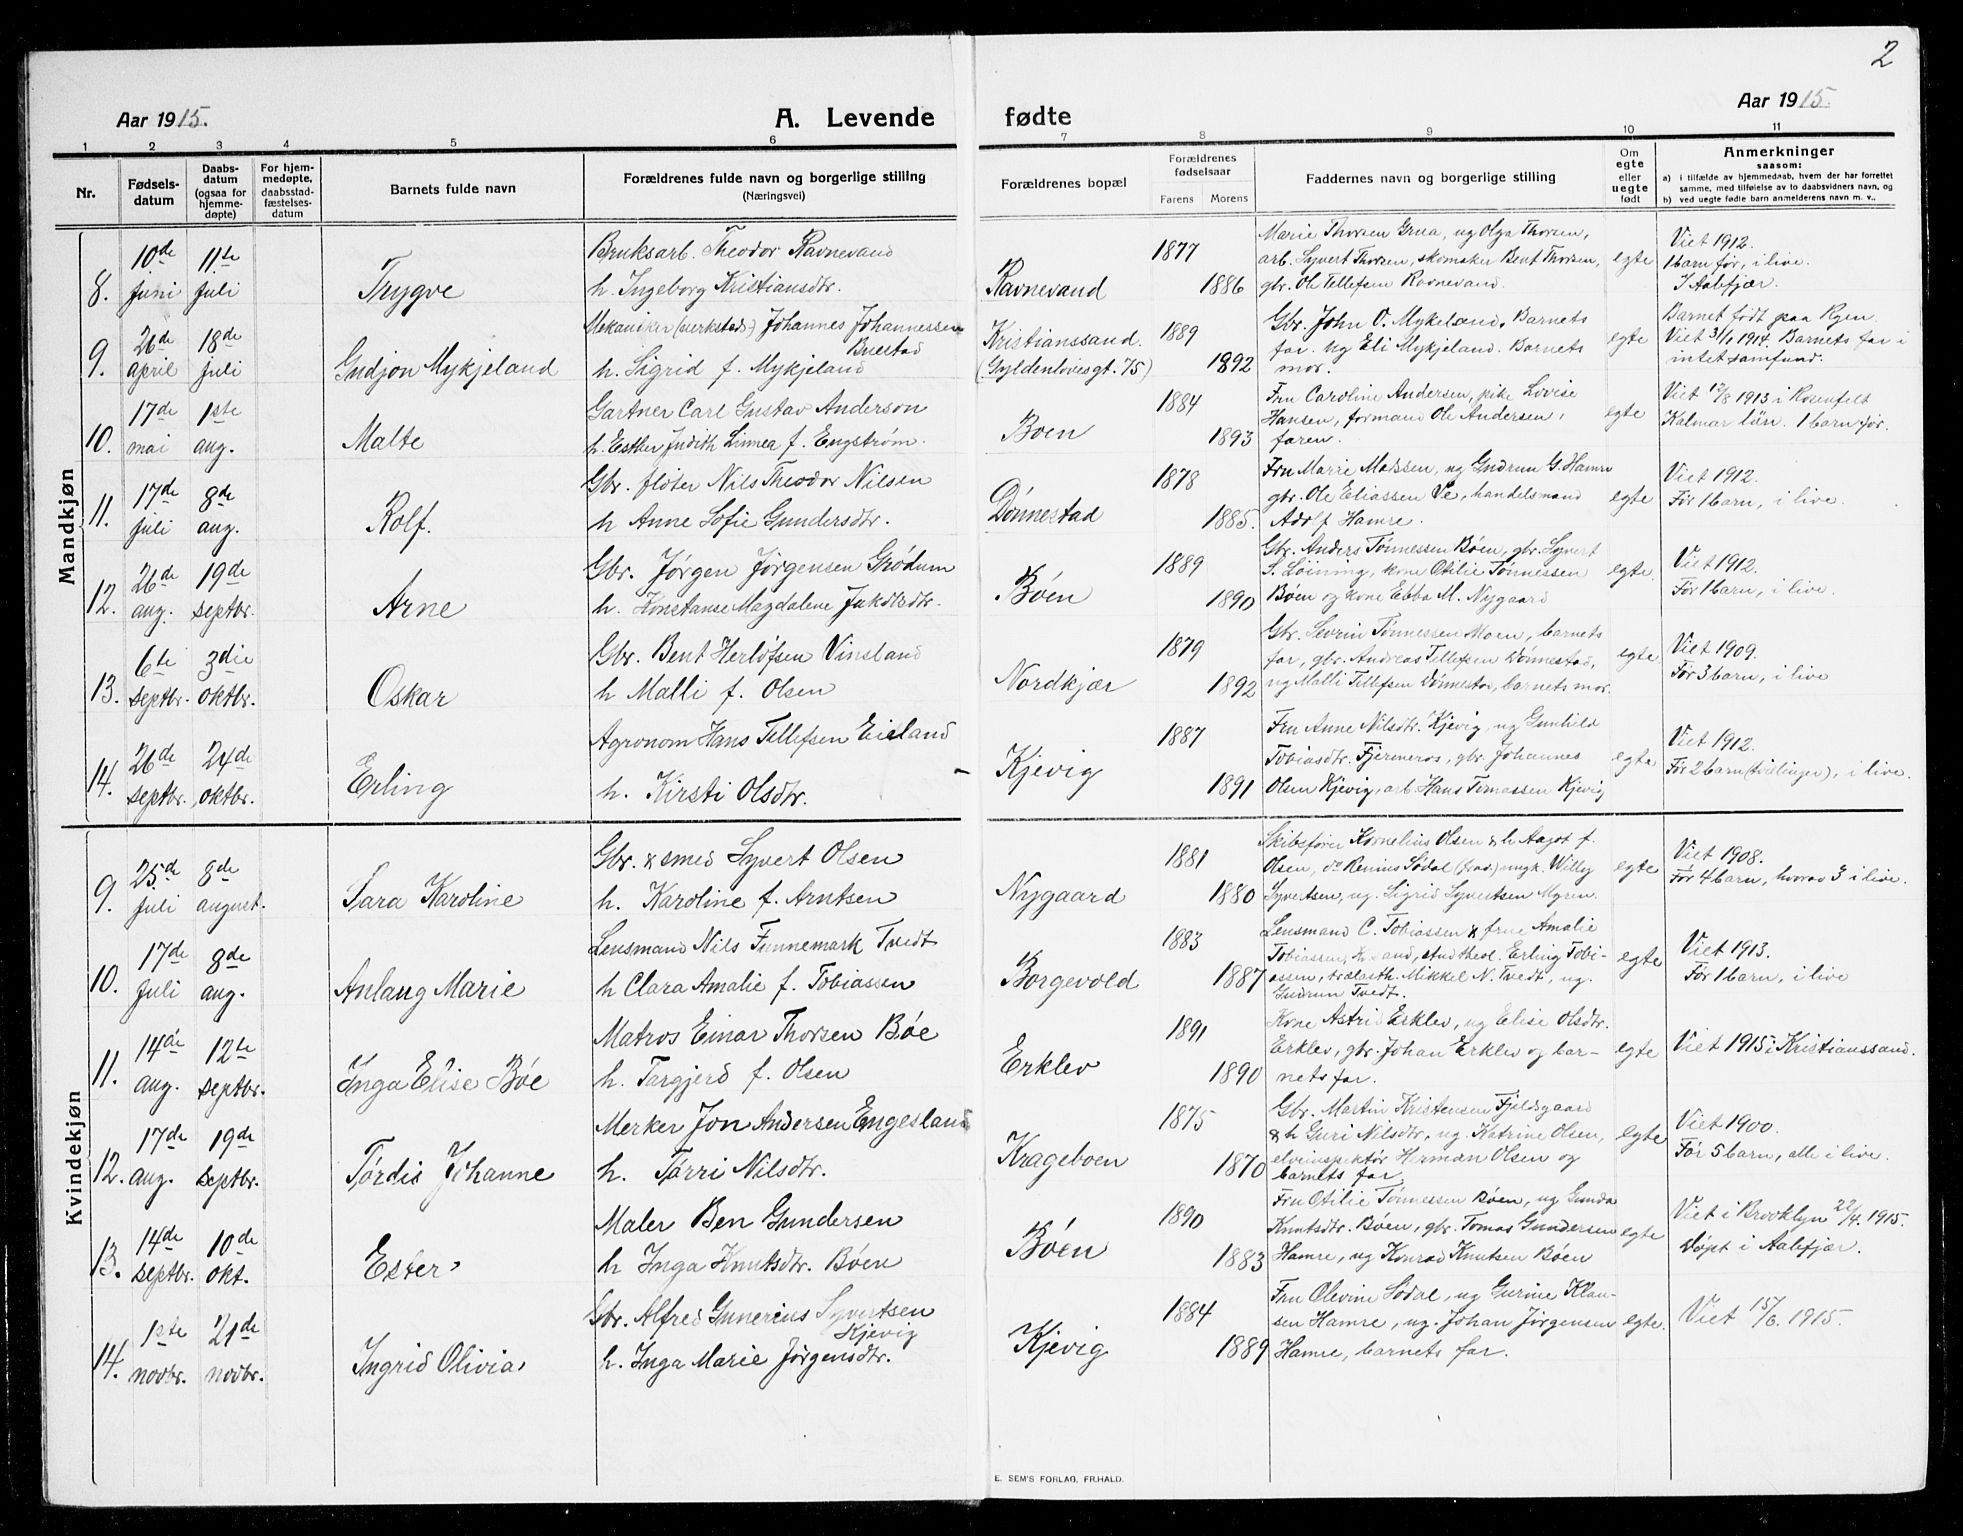 2
Aar 1915.
A. Levende
fødte
Aar 1915.
1 2 3 4 5 6 7 8 9 10 11
Nr.
Fødsels-
datum
Daabs-
datum
(ogsaa for
hjemme-
døpte)
For hjem-
medøpte,
daabsstad-
fæstelses-
datum
Barnets fulde navn
Forældrenes fulde navn og borgerlige stilling
(Næringsvei)
Forældrenes bopæl
Forældrenes
fødselsaar
Farens Morens
Faddernes navn og borgerlige stilling
Om
egte
eller
uegte
født
Anmerkninger
saasom:
a) i tilfælde av hjemmedaab, hvem der har forrettet
samme, med tilføielse av to daabsvidners navn, og
b) ved uegte fødte barn anmelderens navn m. v..
Mandkjøn
8.
10de
juni
11te
juli
Trygve
Bruksarb. Theodor Ravnevand
h. Ingeborg Kristiansdtr.
Ravnevand
1877
1886
Marie Thorsen Grua, ug Olga Thorsen,
arb. Syvert Thorsen, skomaker Bent Thorsen,
gbr. Ole Tellefsen Ravnevand.
egte
Viet 1912.
1 barn før, i live.
I Aalefjær.
9.
26de
april
18de
juli
Gudjon Mykjeland
Mekaniker (verksteds) Johannes Johannessen
Buestad
h. Sigrid f. Mykjeland
Kristianssand.
(Gyldenløvesgt. 75)
1889
1892
Gbr. John O. Mykeland, Barnets
far. ug Eli Mykjeland. Barnets
mor.
egte
Barnet født paa Ryen.
Viet 3/1 1914. Barnets far i
intet samfund.
10.
17de
mai
1ste
aug.
Malte
Gartner Carl Gustav Anderson
h. Esther Judith Linnea f. Engstrøm.
Boen
1884
1893
Fru Caroline Andersen, pike Lovise
Hansen, formand Ole Andersen,
faren.
egte
Viet 17/8 1913 i Rosenfelt
Kalmar län. 1 barn før.
11.
17de
juli
8de
aug.
Rolf.
Gbr. fløter Nils Theodor Nilsen
h Anne Sofie Gundersdtr.
Dønnestad
1878
1885.
Fru Marie Madssen, ug Gudrun G. Hamre
gbr. Ole Eliassen Ve, handelsmand
Adolf Hamre.
egte
Viet 1912.
Før 1 barn, i live.
12.
26de
aug.
19de
septbr.
Arne
Gbr. Jørgen Jørgensen Grødum
h. Konstanse Magdalene Jakobsdtr.
Bøen
1889
1890
Gbr. Anders Tønnessen Bøen, gbr. Syvert
S. Løining, kone Otilie Tønnessen
Bøen og kone Ebba M. Nygaard
egte
Viet 1912.
Før 1 barn, i live.
13.
6te
septbr.
3die
oktbr.
Oskar
Gbr. Bent Herlofsen Vinsland
h Malli f. Olsen
Nordkjær
1879
1892
Gbr. Sevrin Tønnessen Moen, barnets
far, gbr. Andreas Tellefsen Dønnestad,
ug Malli Tellefsen Dønnestad, barnets mor.
egte
Viet 1909.
Før 3 barn, i live
14.
26de
septbr.
24de
oktbr.
Erling
Agronom Hans Tellefsen Eieland
h. Kirsti Olsdtr.
Kjevig
1887
1891
Fru Anne Nilsdtr. Kjevig, ug Gunhild
Tobiasdtr. Fjermeros, gbr. Johannes
Olsen Kjevig, arb Hans Tomassen Kjevig
egte
Viet 1912.
Før 2 barn (tvillinger), i live.
Kvindekjøn
9.
25de
juli
8de
august.
Sara Karoline
Gbr. & smed Syvert Olsen
h. Karoline f. Arntsen
Nygaard
1881
1880
Skibsfører Kornelius Olsen & h Aagot f.
Olsen, do Renius Sødal (grd.) ungk. Willy
Syvertsen, ug. Sigrid Syvertsen Myren.
egte
Viet 1908.
Før 4 barn, hvorav 3 i live.
10.
17de
juli
8de
aug.
Anlaug Marie
Lensmand Nils Funnemark Tvedt
h Clara Amalie f. Tobiassen
Borgevold
1883
1887
Lensmand C. Tobiassen & frue Amalie
Tobiassen, Kr.sand, stud theol. Erling Tobi-
assen, trælasth. Mikkel N. Tvedt, ug.
Gudrun Tvedt.
egte
Viet 1913.
Før 1 barn, i live
11.
14de
aug.
12te
septbr.
Inga Elise Bøe
Matros Einar Thorsen Bøe
h. Targjerd f. Olsen
Erklev
1891
1890
Kone Astri Erklev, ug Elise Olsdtr.
Erklev, gbr. Johan Erklev og bar-
nets far.
egte
Viet 1915 i Kristianssand.
12.
17de
aug.
19de
septbr.
Tordis Johanne
Merker Jon Andersen Engesland
h. Torri Nilsdtr.
Krageboen
1875
1870
Gbr. Martin Kristensen Fjeldsgaard
& h Guri Nilsdtr, ug. Katrine Olsen,
elveinspektør Herman Olsen og
barnets far
egte
Viet 1900.
Før 5 barn, alle i live.
13.
14de
septbr.
10de
okt.
Ester
Maler Ben Gundersen
h Inga Knutsdtr. Bøen
Bøen
1890
1883
Fru Otilie Tønnessen Bøen, ug Gunda
Knutsdtr. Bøen, gbr. Tomas Gundersen
Hamre, ug Konrad Knutsen Bøen
egte
Viet i Brooklyn 22/4. 1915.
Døpt i Aalefjær.
14.
1ste
novbr.
21de
novbr.
Ingrid Olivia
Gbr. Alfred Gunerius Syvertsen
Kjevig
h. Inga Marie Jørgensdtr.
Kjevig
1884
1889
Fru Olevine Sødal, ug Gurine Klau-
sen Hamre, ug. Johan Jørgensen
Hamre, barnets far.
egte.
Viet 15/6. 1915.
E. SEM'S FORLAG, FR.HALD.